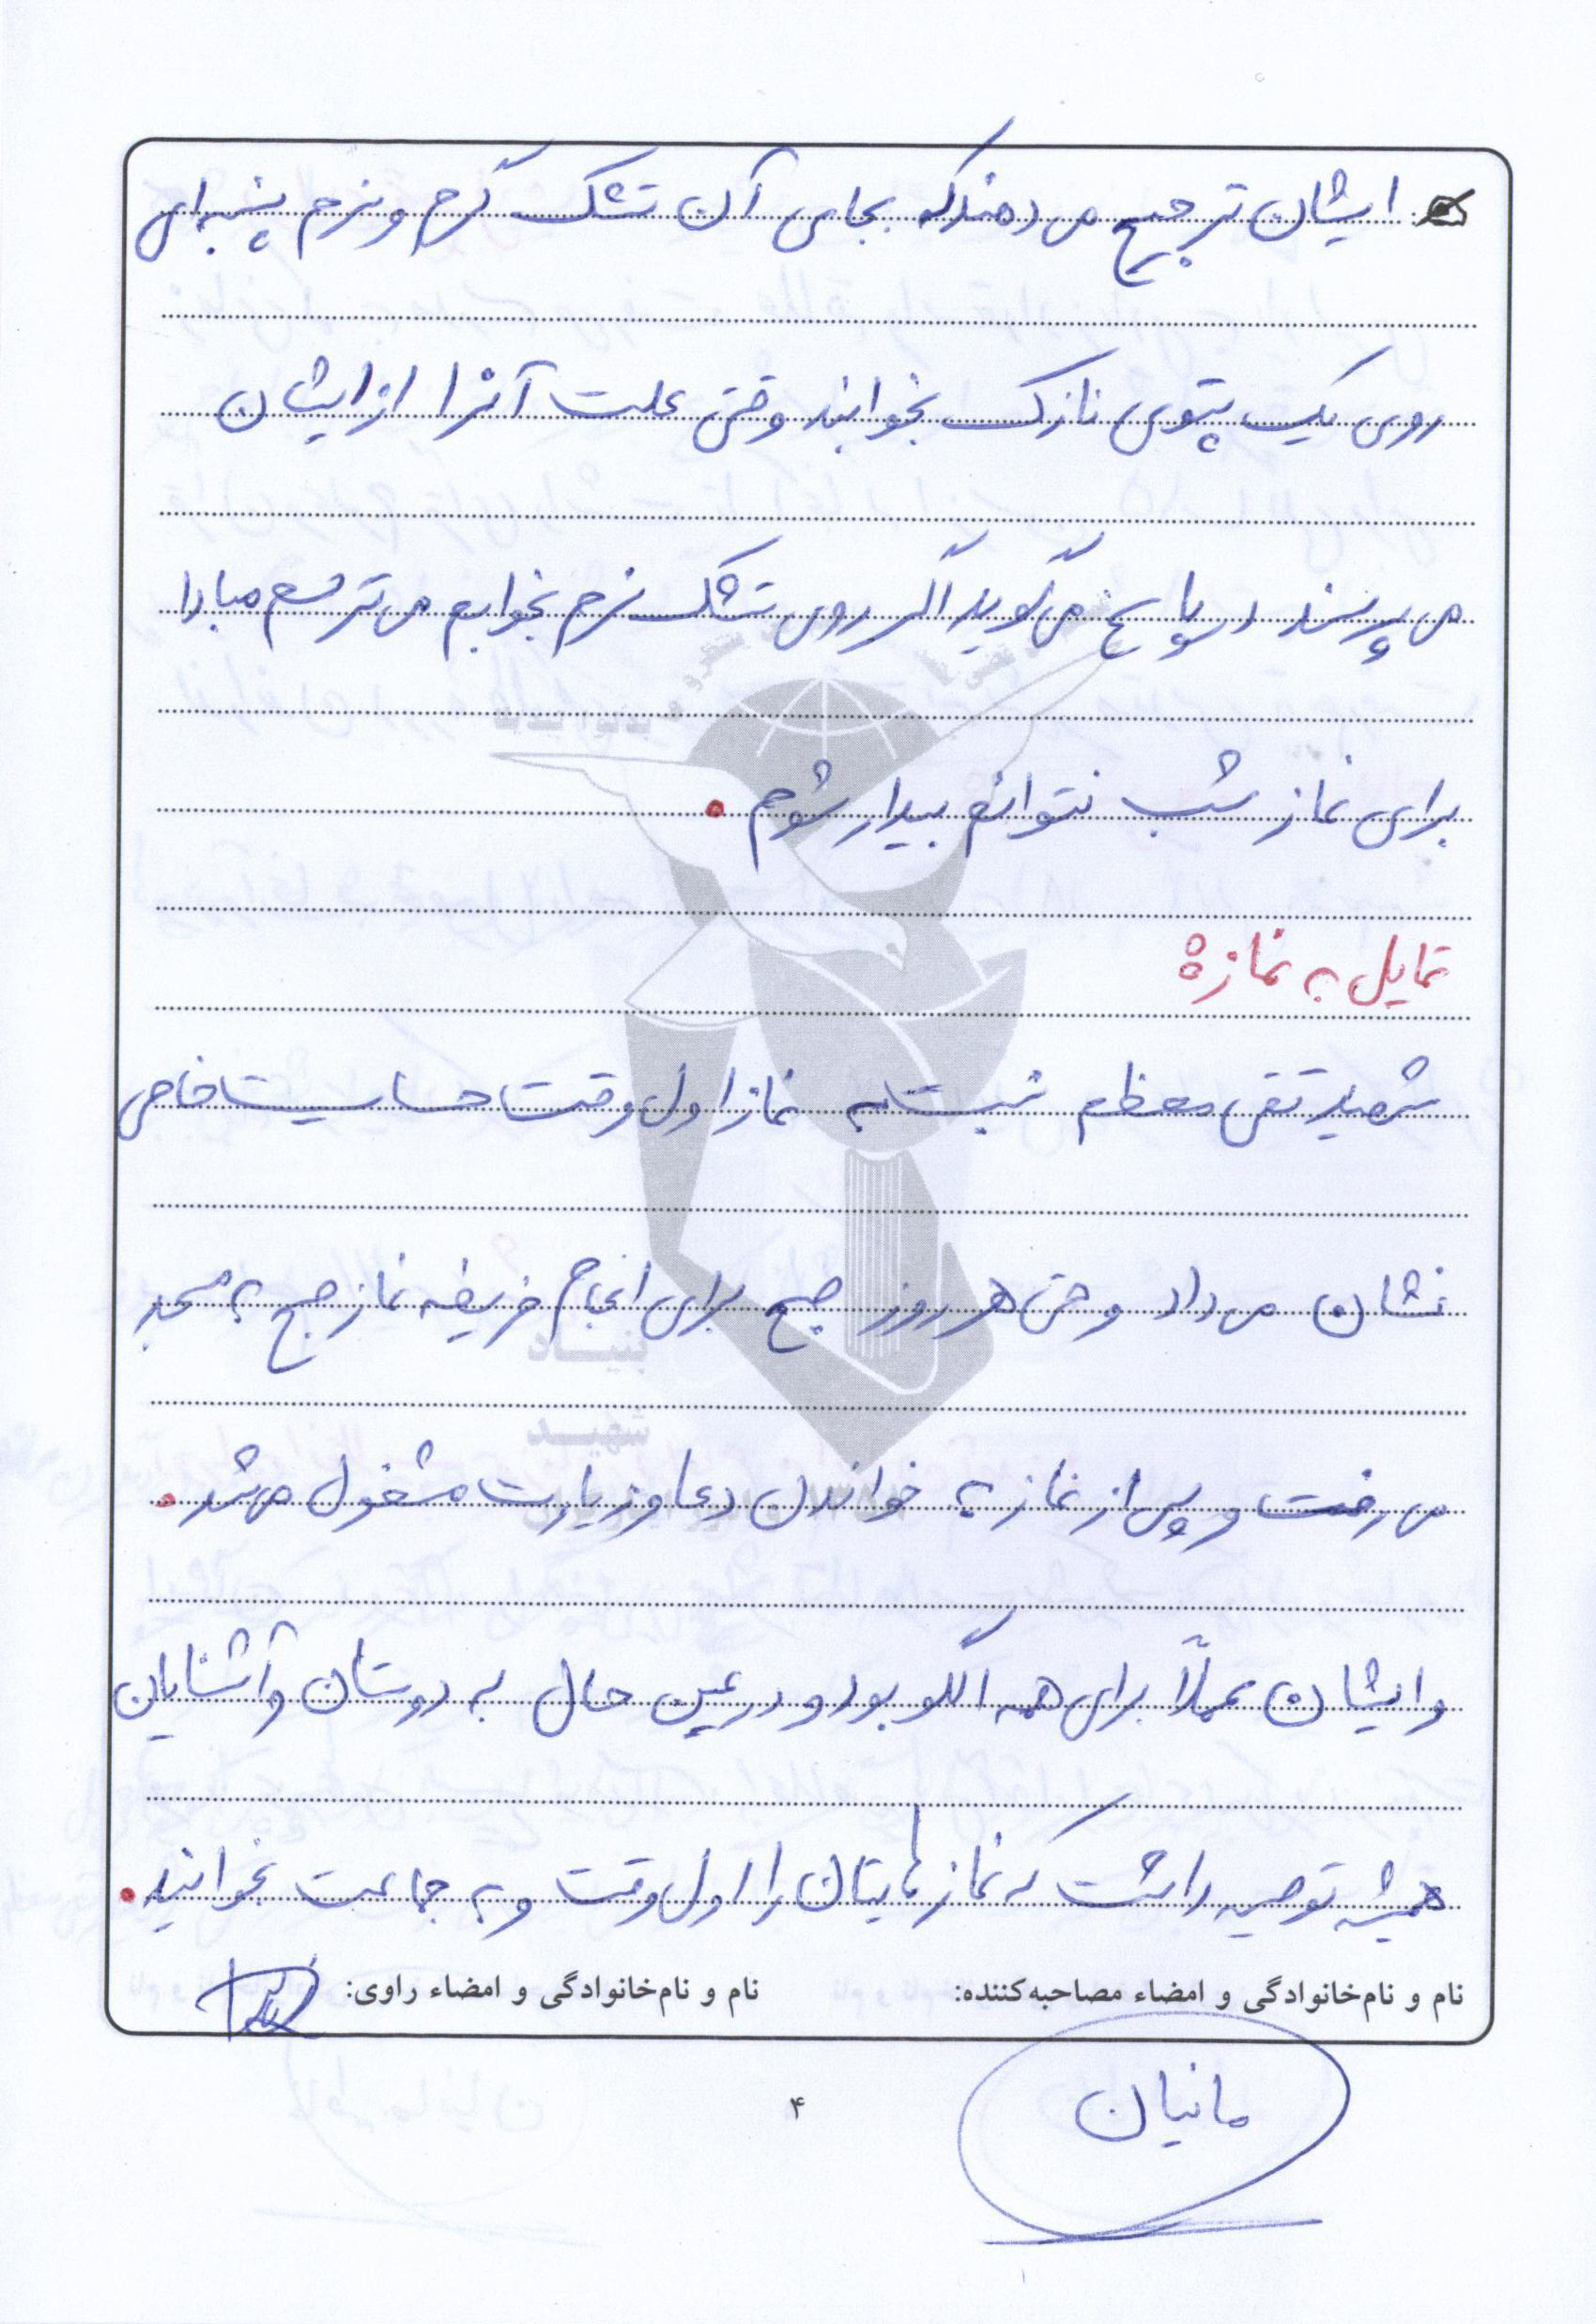 ایشان ترجیح می دهند که بجای آن تشک گرم و نرم پنبه ای
روی یک پتوی نازک بخوابند وقتی علت آنرا از ایشان
می پرسند در پاسخ می گوید اگر روی تشک نرم بخوابم می ترسم مبادا
برای نماز شب نتوانم بیدار شوم .
تمایل به نماز:
شهید تقی معظم نسبت به نماز اول وقت حساسیت خاصی
نشان می داد و حتی هر روز صبح برای انجام فریضه نماز صبح به مسجد
می رفت و پس از نماز به خواندن دعا و زیارت مشغول می شد .
و ایشان عملاً برای همه الگو بود و در عین حال به دوستان و آشنایان
همیشه توصیه داشت که نماز هایتان را اول وقت و به جماعت بخوانید .
نام و نام‌خانوادگی و امضاء مصاحبه‌کننده: نام و نام‌خانوادگی و امضاء راوی:
مانیان
۴
بنیاد
شهید